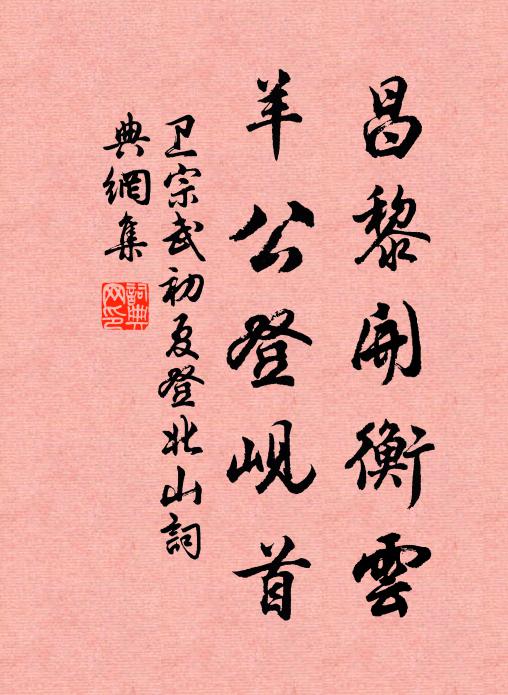 昌黎開衡雲
羊公登峴首
卫宗武初夏登北山詞
典網集
詞典网印